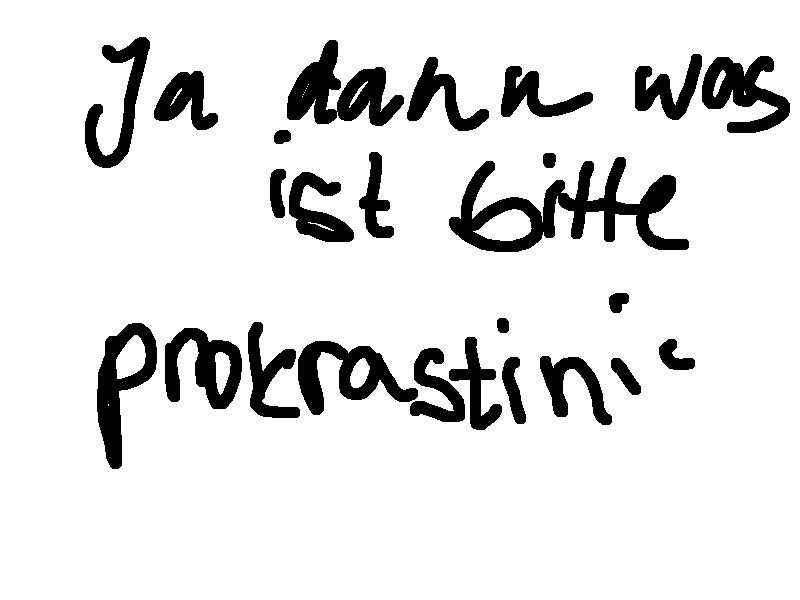 Ja dann was
ist bitte
prokrastini